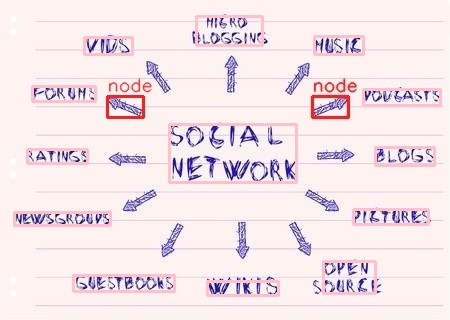 MICRO
BLOGGING
VIDS
MUSIC
node
node
FORUMS
PODCASTS
SOCIAL
NETWORK
RATINGS
BLOGS
NEWSGROUPS
PICTURES
GUESTBOOKS
WIKIS
OPEN
SOURCE